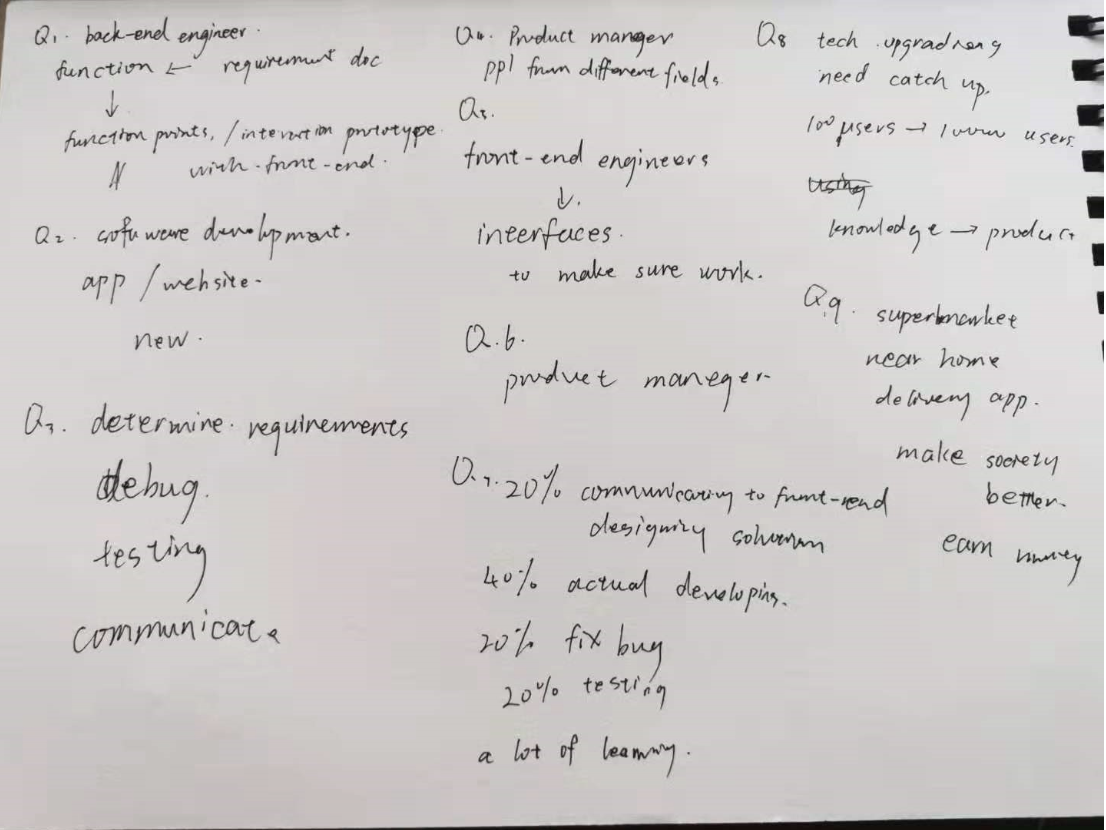 Q1. back-end engineer.
function ← requirement doc
↓
function points, / interaction prototype
with front-end.
Q2. software development.
app / website.
new.
Q3. determine requirements
debug.
testing
communicate
Q4. Product manger
ppl from different fields.
Q5.
front-end engineers
↓
interfaces.
to make sure work.
Q.6.
product maneger
Q.7. 20% communicating to front-end
designing solution
40% actual developing.
20% fix bug
20% testing
a lot of learning.
Q8 tech upgrading
need catch up.
100 users → users.
knowledge → product
Q.9. supermarket
near home
delivery app.
make society
better.
earn money